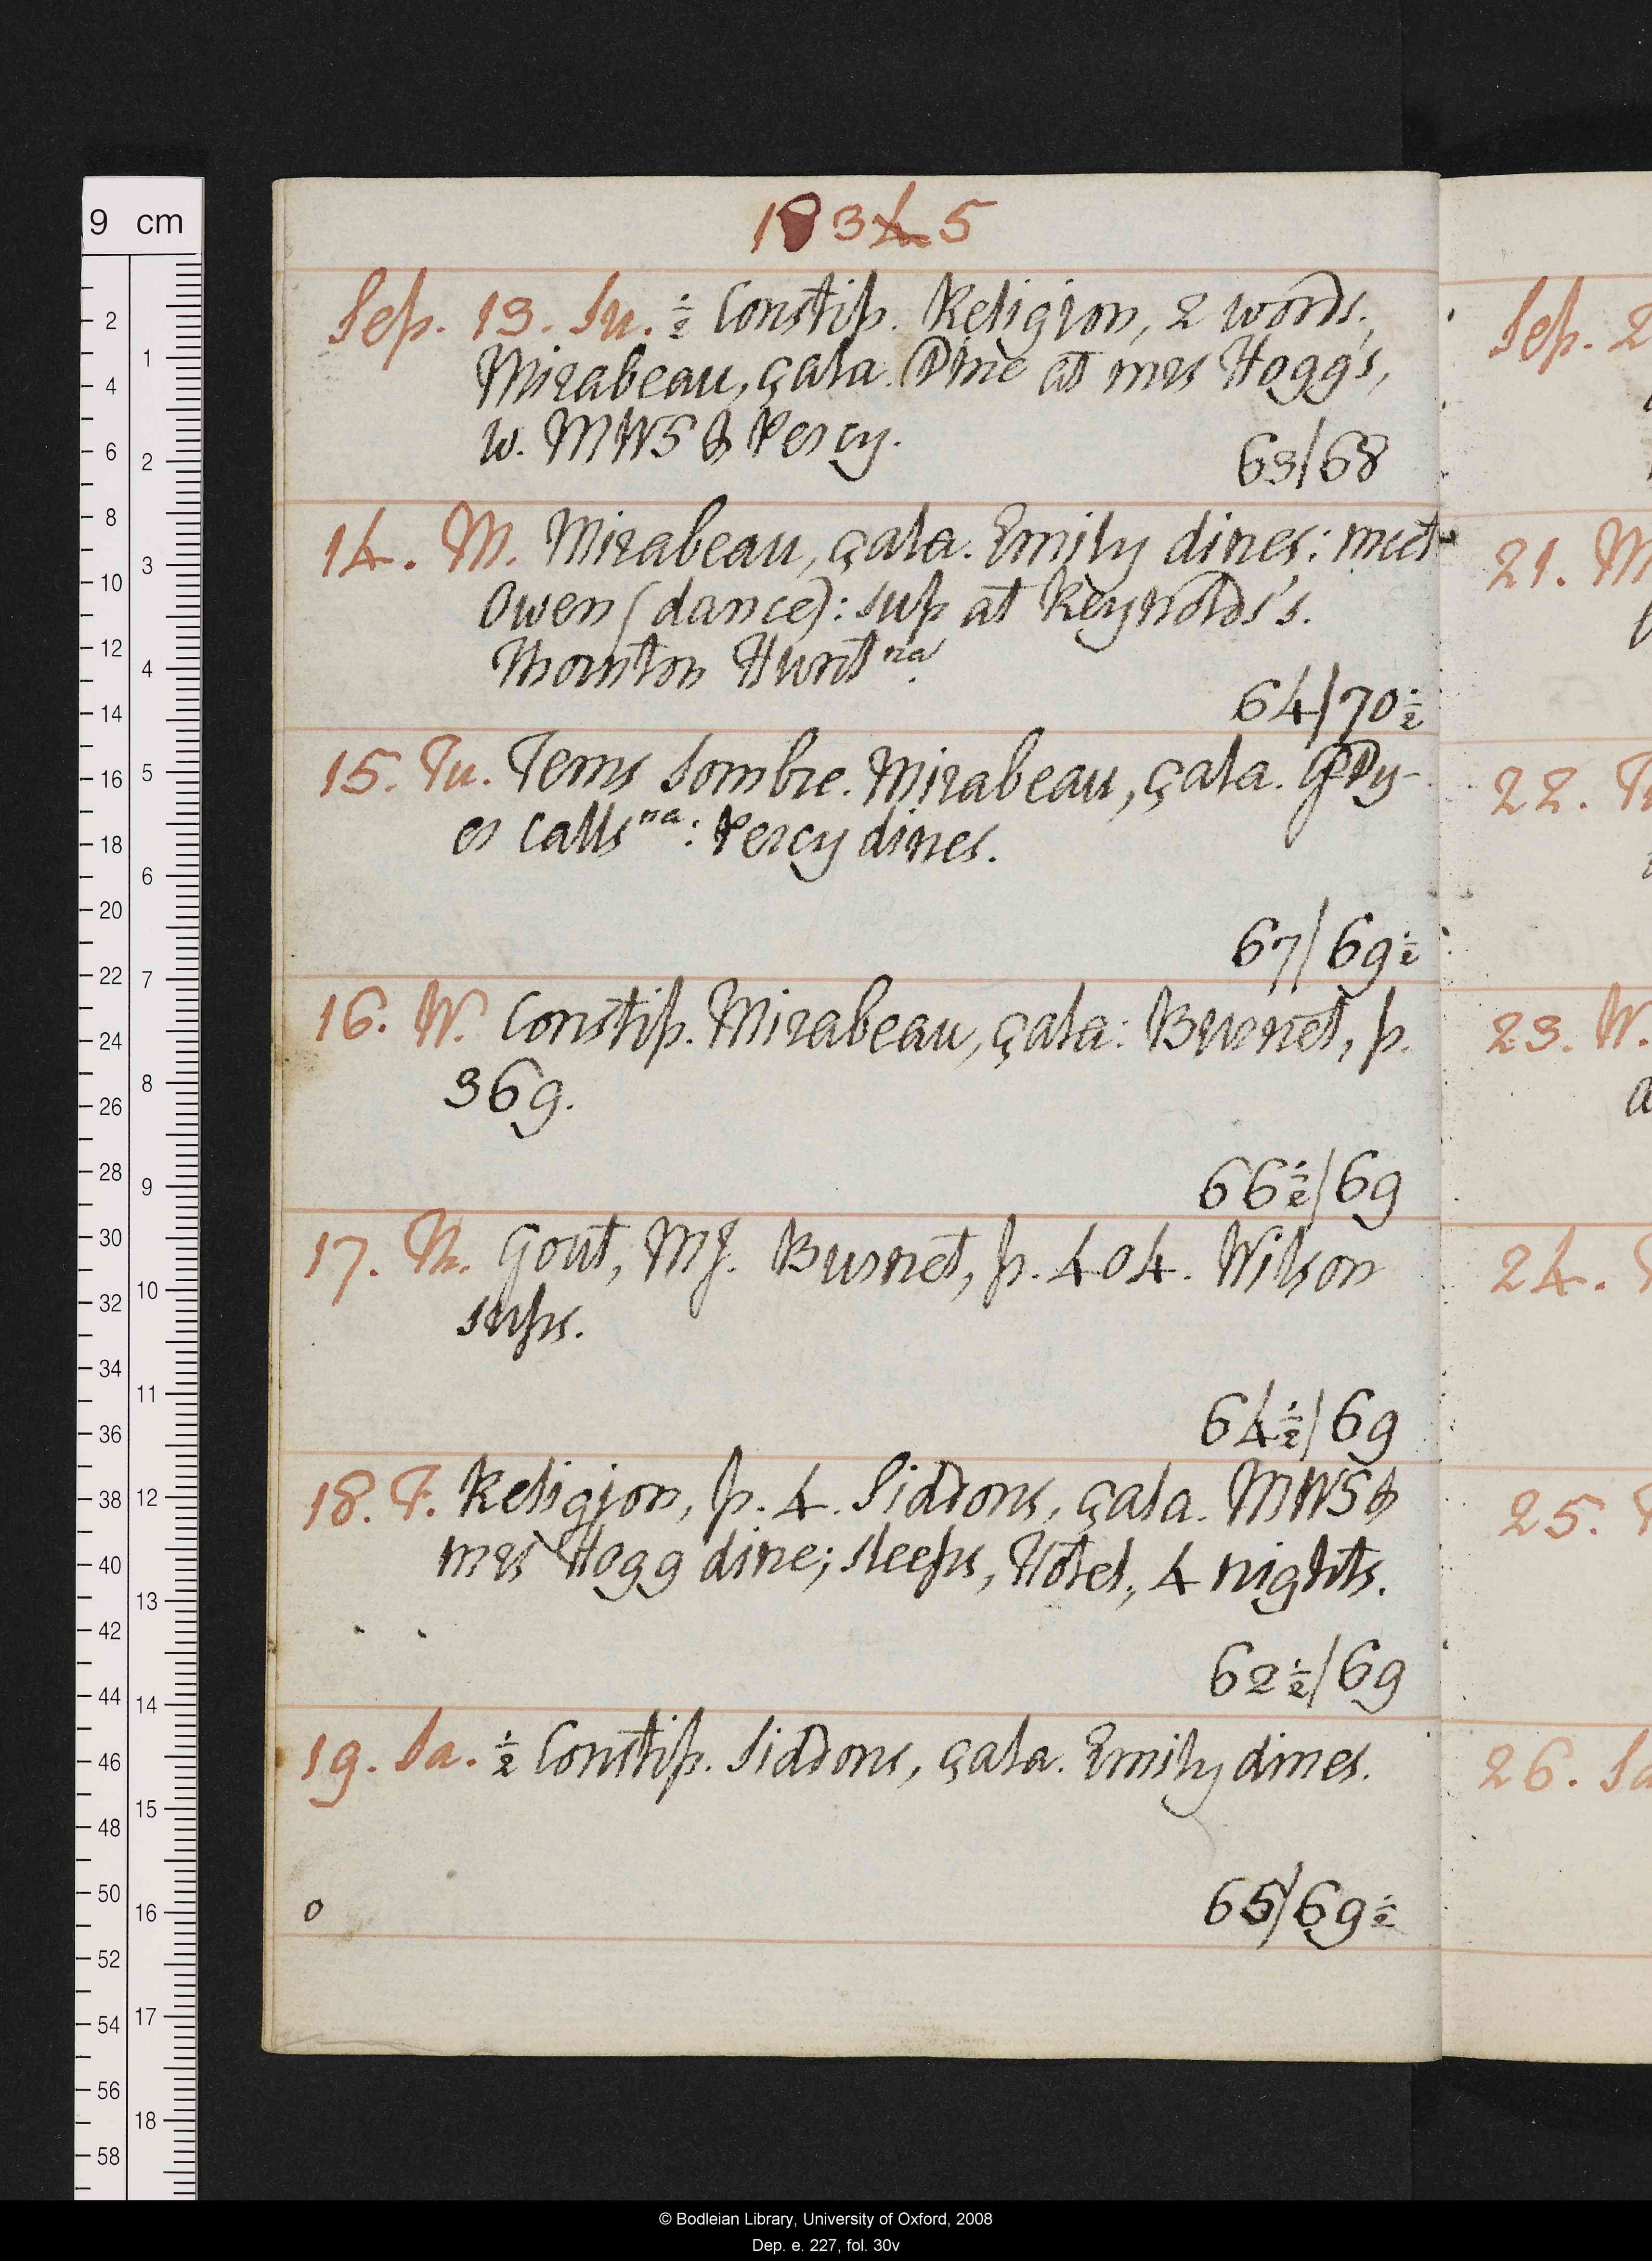 1834 5
Sep. 13. Su. ½ Constip. Religion, 2 words.
Mirabeau, çala. Dine at mrs Hogg's,
w. MWS & Percy.
63/68
14. M. Mirabeau, çala. Emily dines: meet
Owen (dance): sup at Reynolds's.
Thornton Hunt na.
64/70½
15. Tu. Tems sombre. Mirabeau, çala. G Dy-
er calls na: Percy dines.
67/69½
16. W. Constip. Mirabeau, çala: Burnet, p.
369.
66½/69
17. Th. Gout, MJ. Burnet, p. 404. Wilson
sups.
64½/69
18. F. Religion, p. 4. Siddons, çala. MWS &
mrs Hogg dine; sleeps, Hotel, 4 nights.
62½/69
19. Sa. ½ Constip. Siddons, çala. Emily dines.
65/69½
o
Sep. 2
21. M
22. T
23. W.
a
24.
25.
26. Sa
9 cm
2 4 6 8 10 12 14 16 18 20 22 24 26 28 30 32 34 36 38 40 42 44 46 48 50 52 54 56 58
1 2 3 4 5 6 7 8 9 10 11 12 13 14 15 16 17 18
© Bodleian Library, University of Oxford, 2008
Dep. e. 227, fol. 30v